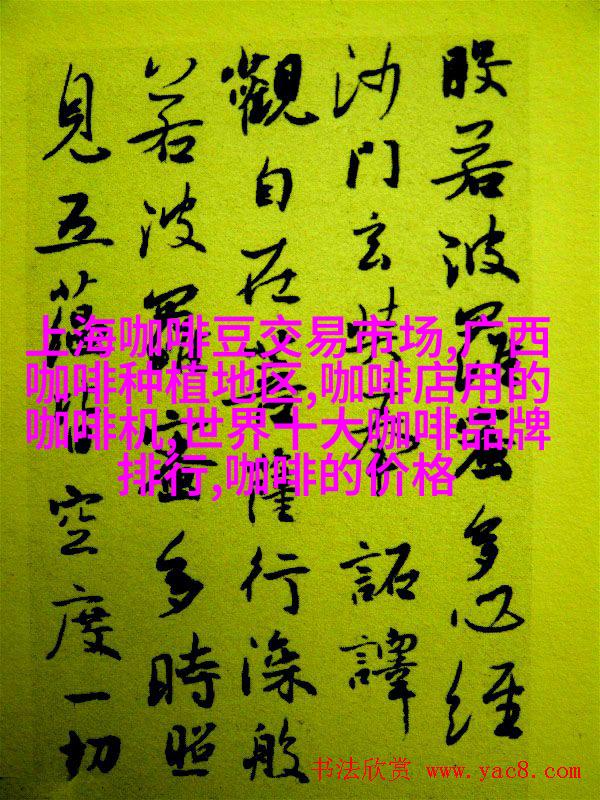 般若波羅蜜多心經
沙門玄奘奉 詔譯
觀自在菩薩行深般
若波羅蜜多時照
見五蘊皆空度一切
上海咖啡豆交易市场,广西
咖啡种植地区,咖啡店用的
咖啡机,世界十大咖啡品牌
排行,咖啡的价格
书法欣赏 www.yac8.com